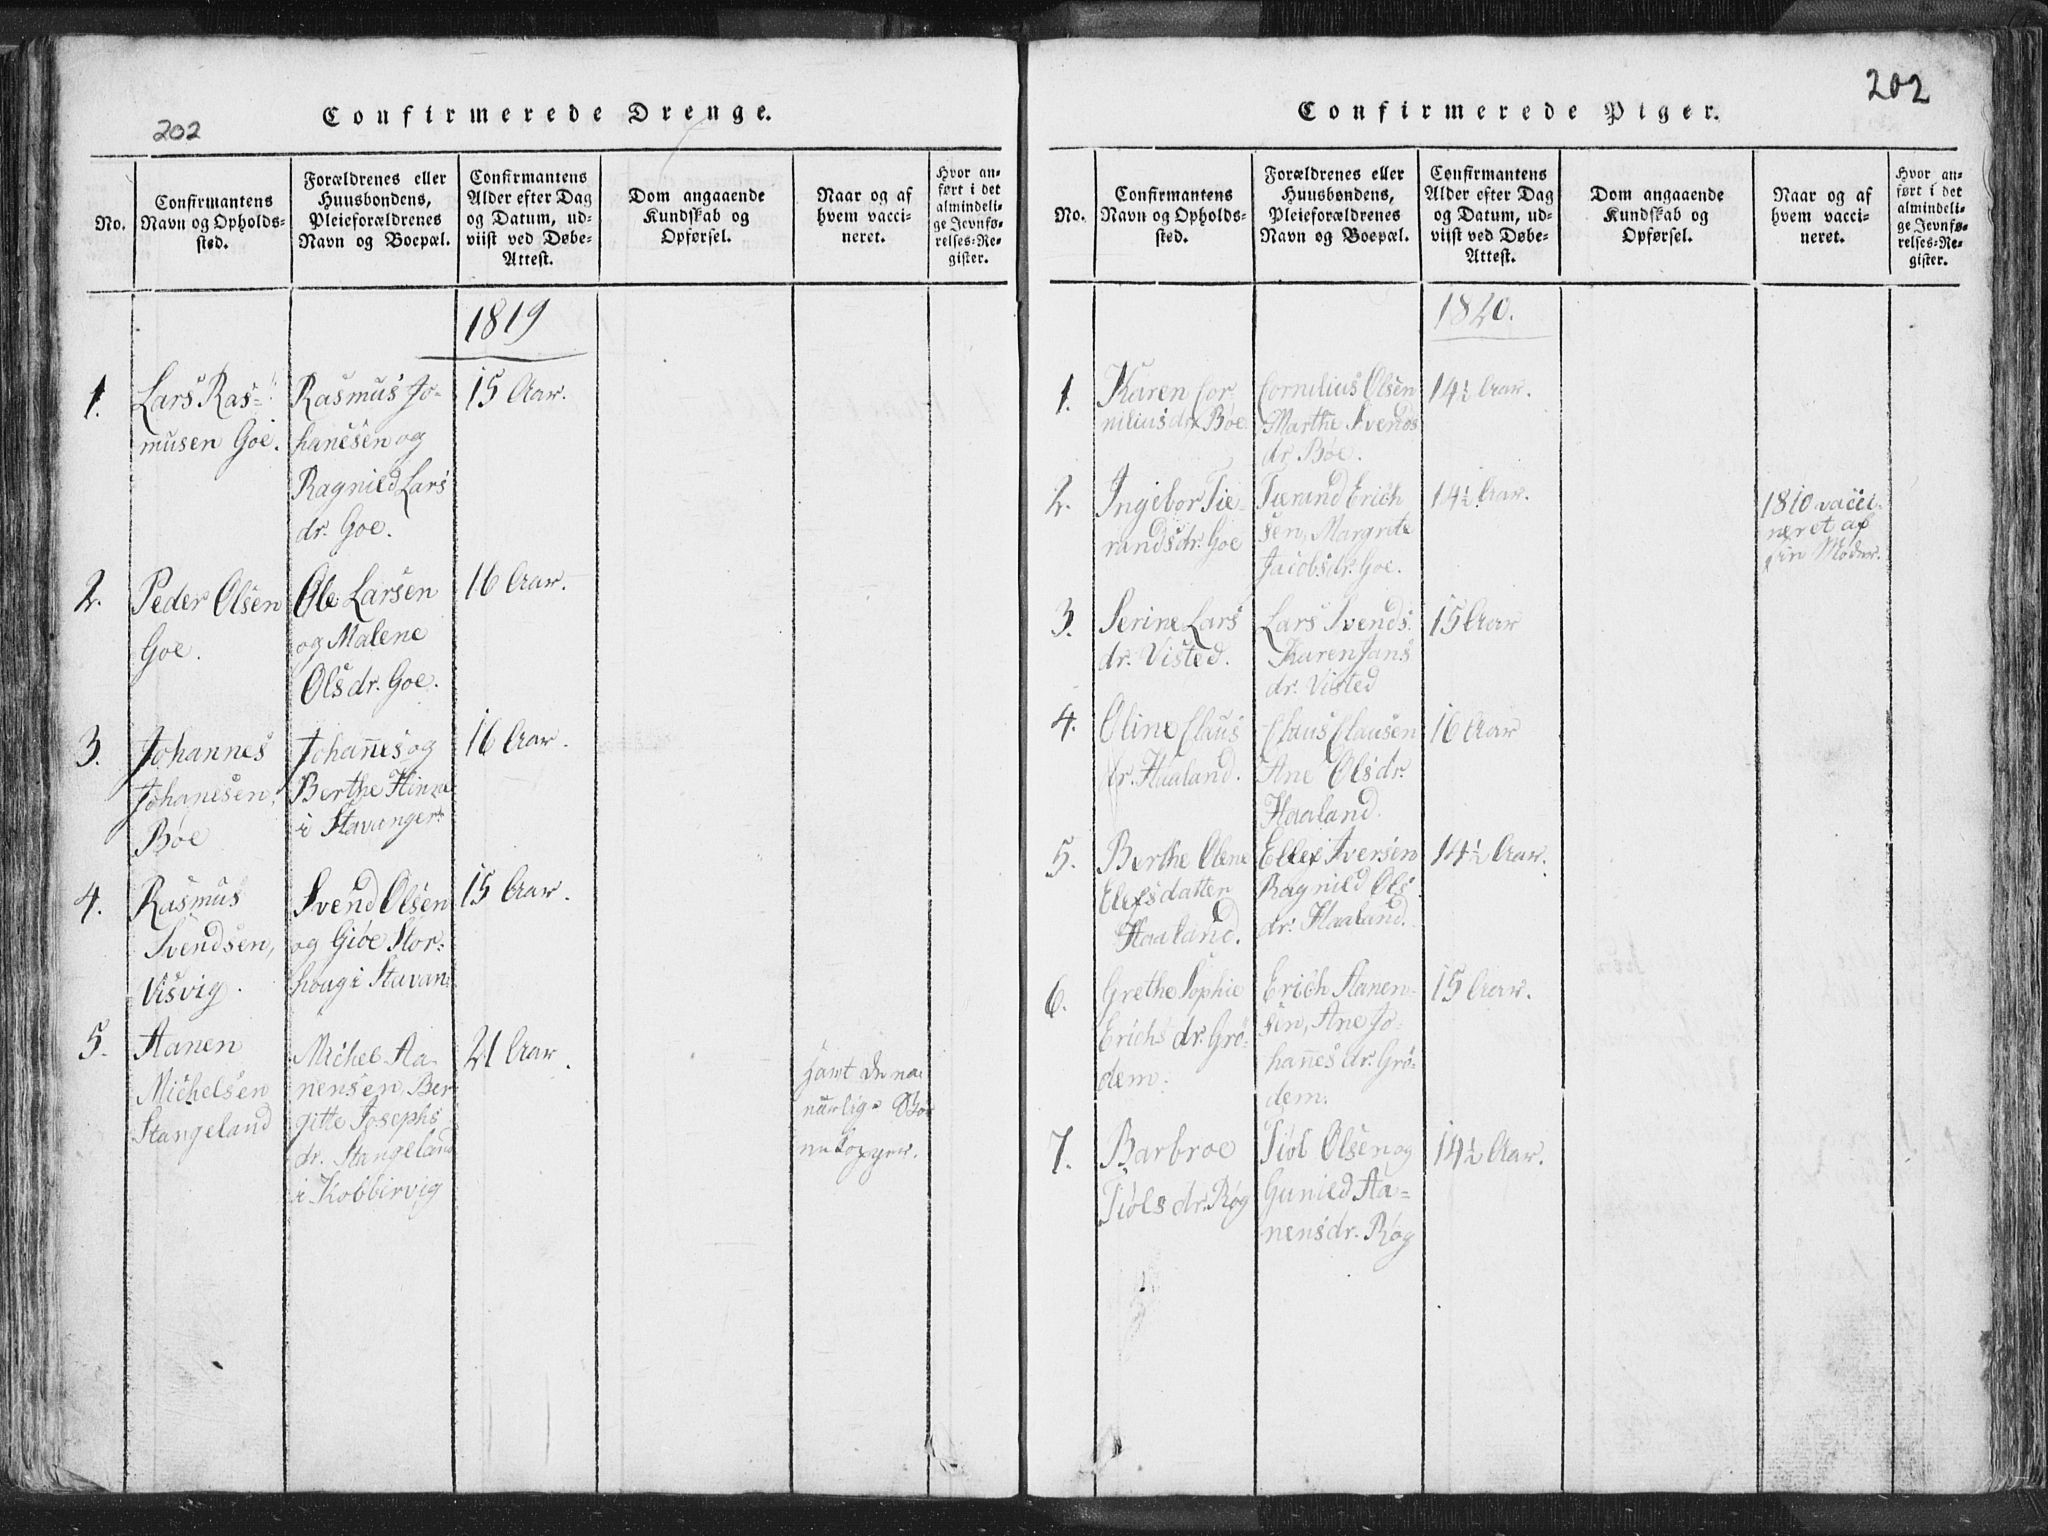 202
Confirmerede Drenge.
No.
Confirmantens
Navn og Opholds-
sted.
Forældrenes eller
Huusbondens,
Pleieforældrenes
Navn og Boepæl.
Confirmantens
Alder efter Dag
og Datum, ud-
viist ved Døbe-
Attest.
Dom angaaende
Kundskab og
Opførsel.
Naar og af
hvem vacci-
neret.
Hvor an-
ført i det
almindeli-
ge Jevnfø-
relses-Re-
gister.
1819
1.
Lars Ras-
musen Goe.
Rasmus Jo-
hanesen og
Ragnild Lars
dr. Goe.
15 Aar.
2.
Peder Olsen
Goe.
Ole Larsen
og Malene
Olsdr. Goe.
16 Aar.
3.
Johannes
Johanesen,
Bøe
Johañes og
Berthe
i Stavanger
16 Aar.
4.
Rasmus
Svendsen,
Visvig.
Svend Olsen
og Giøe Stor-
houg i Stavan
15 Aar.
5.
Aanen
Michelsen
Stangeland
Michel Aa-
nensen, Ber
gitte Josephs
dr. Stangeland
i Kobbirvig
21 Aar.
havt de na
turlige
Kopper.
202
Confirmerede Piger.
No.
Confirmantens
Navn og Opholds-
sted.
Forældrenes eller
Huusbondens,
Pleieforældrenes
Navn og Boepæl.
Confirmantens
Alder efter Dag
og Datum, ud-
viist ved Døbe-
Attest.
Dom angaaende
Kundskab og
Opførsel.
Naar og af
hvem vacci-
neret.
Hvor an-
ført i det
almindeli-
ge Jevnfø-
relses-Re-
gister.
1820.
1.
Karen Cor
niliusdr Bøe
Cornilius Olsen
Marthe Svends
dr Bøe.
14½ Aar.
2.
Ingebor Tie
randsdr. Goe
Tierand Erich
sen, Margrete
Jacobsdr. Goe.
14½ Aar.
1810 vacci-
neret af
sin Moder.
3.
Serine Lars
dr. Visted.
Lars Svends.
Karen Jans
dr. Visted
15 Aar
4.
Oline Claus
dr. Haaland.
Claus Clausen
Ane Olsdr.
Haaland.
16 Aar
5.
Berthe Olene
Elefsdatter
Haaland.
Ellef Iversen
Ragnild Ols
dr. Haaland.
14½ Aar.
6.
Grethe Sophie
Erichs dr. Grø-
dem.
Erich Aanen-
sen, Ane Jo-
hañes dr. Grø-
dem.
15 Aar.
7.
Barbroe
Tiøls dr. Røg
Tiøl Olsen og
Gunild Aa-
nensdr. Røg
14½ Aar.